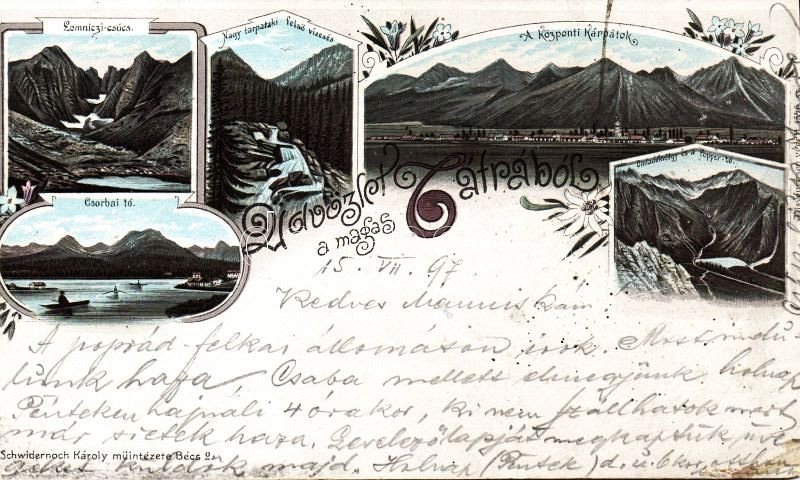 Lomniczi-csúcs.
Nagy tarpataki felső vizesés
A Központi Kárpátok
Csorbai tó.
Üdvözlet a magas Tátraból
15. VII. 97
Kedves Mamuskám
A poprád-felkai állomáson irok. Most indu-
lunk haza, Csaba mellett elmegyünk holnap
Pénteken hajnali 4 órakor, ki nem szállhatok mert
már sietek haza. Levelezőlapját megkaptuk, üve-
geket küldök majd. Holnap (Péntek) d. u. 6 kor
Schwidernoch Károly müintézete Bécs 2.